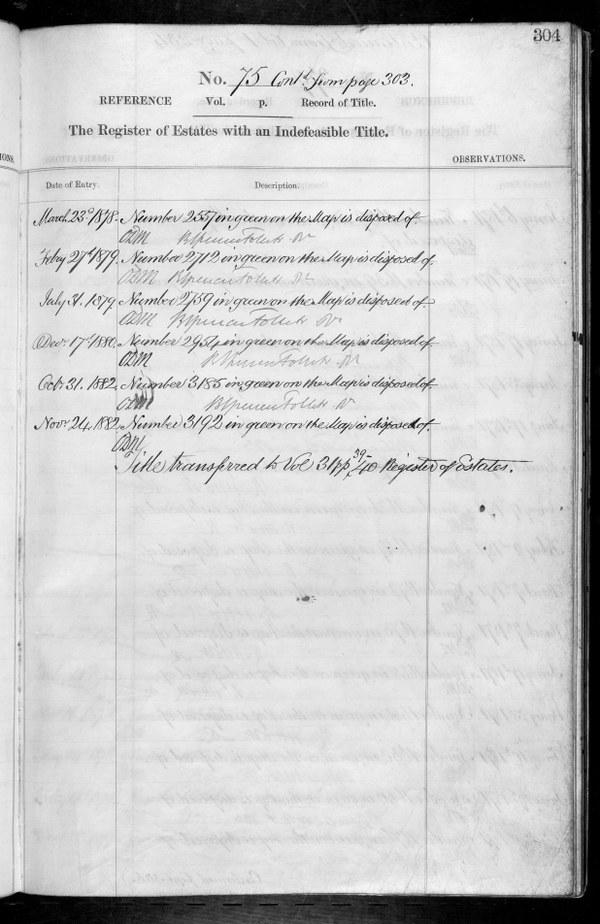 304
No. 75 Contd from page 303.
REFERENCE Vol. p. Record of Title.
The Register of Estates with an Indefeasible Title.
OBSERVATIONS.
Date of Entry. Description.
March 23d 1878. Number 2557 in green on the Map is disposed of.
Feby 27th 1879. Number 2712 in green on the Map is disposed of.
July 31. 1879. Number 2759 in green on the Map is disposed of.
Decr 17th 1880. Number 2954 in green on the Map is disposed of.
Octr 31. 1882. Number 3185 in green on the Map is disposed of.
Novr 24. 1882. Number 3192 in green on the Map is disposed of.
Title transferred to Vol 31 pp 39-40 Register of Estates.